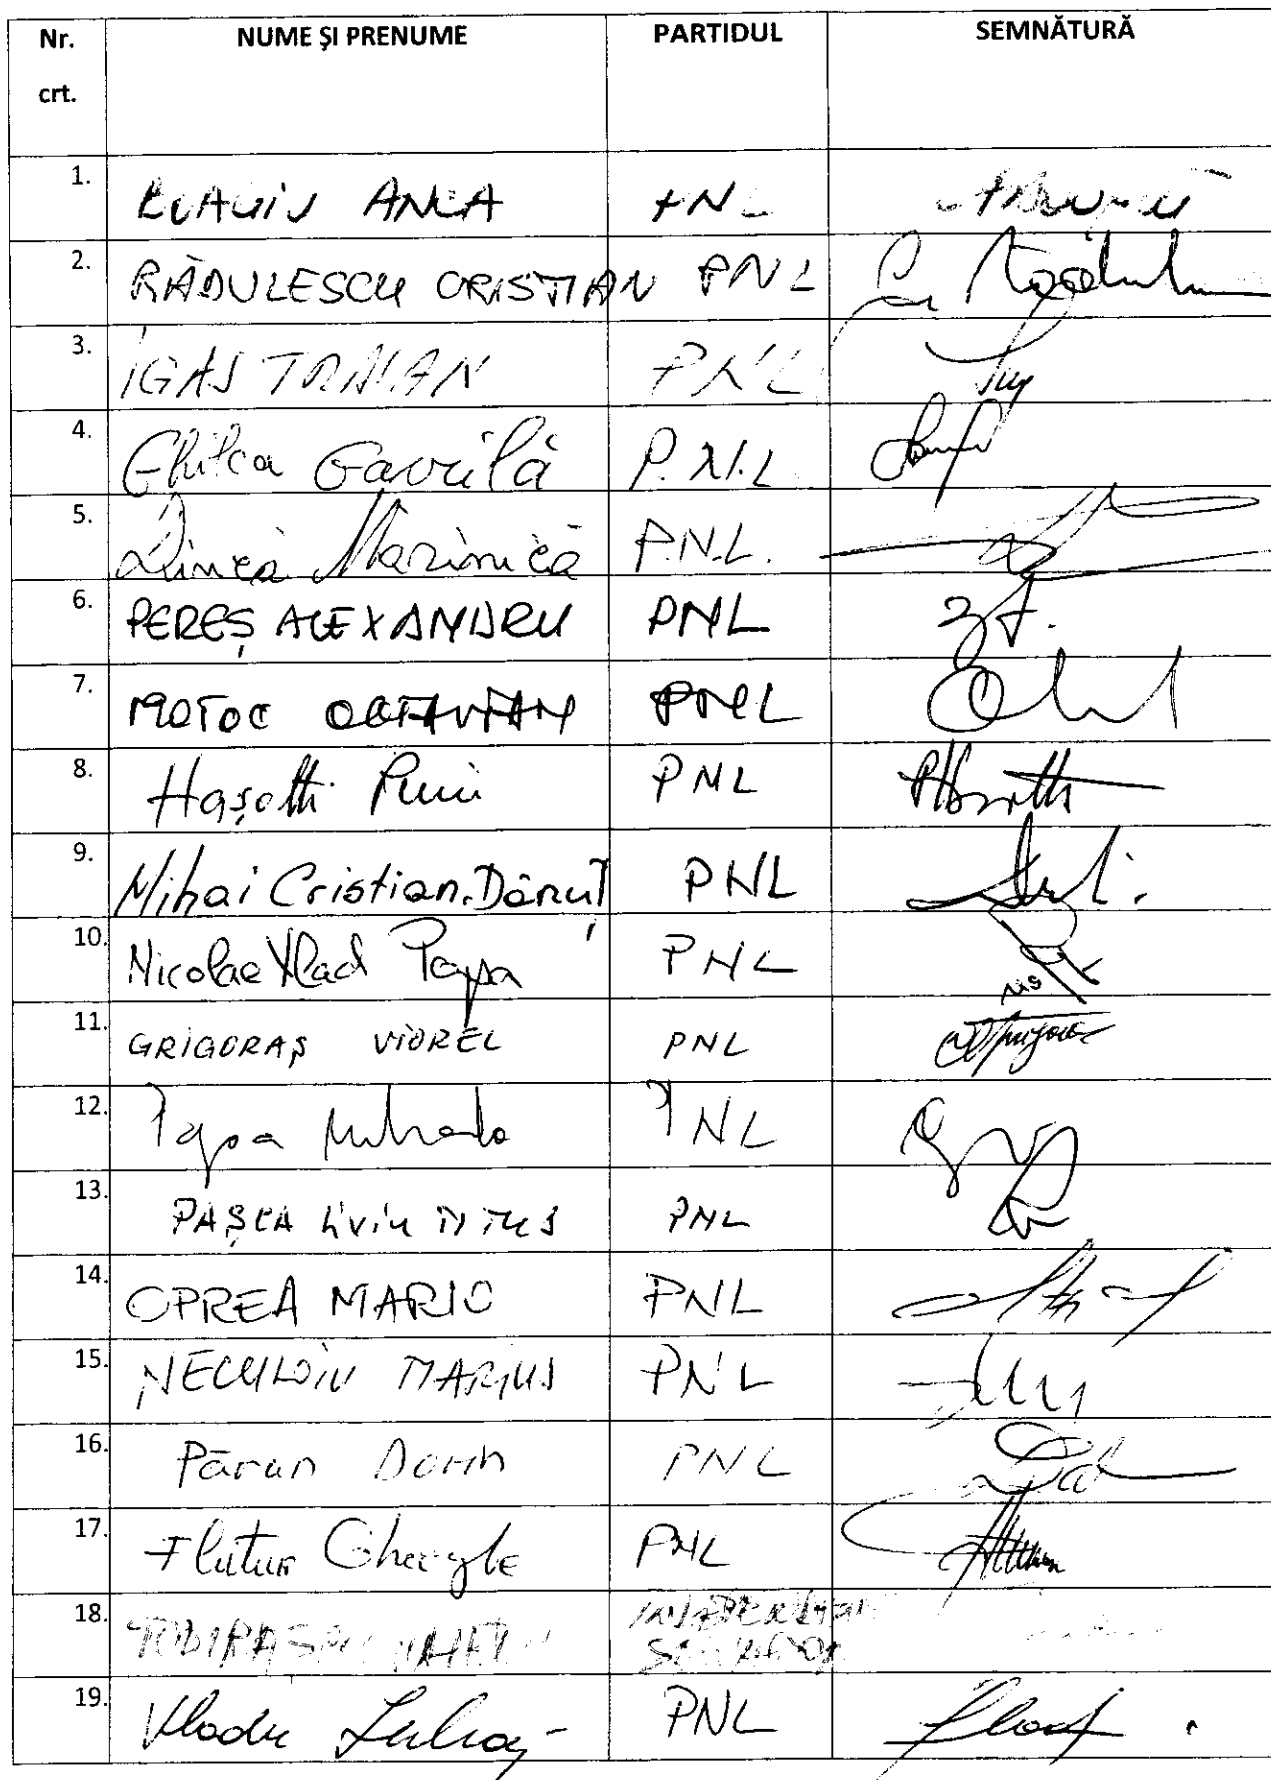 Nr. crt. NUME ŞI PRENUME PARTIDUL SEMNĂTURĂ
1. ANCA PNL
2. RĂDULESCU CRISTIAN PNL
3. IGAS TRAIAN PNL
4. Ghilea Gavrilă P.N.L
5. Dincă Mărinică P.N.L.
6. PEREŞ ALEXANDRU PNL
7. MOTOC OCTAVIAN PNL
8. Haşotti Puiu PNL
9. Mihai Cristian Dănuţ PNL
10. Nicolae Vlad Popa PNL
11. GRIGORAŞ VIOREL PNL
12. Popa Mihaela PNL
13. PAŞCA LIVIU TITUS PNL
14. OPREA MARIO PNL
15. NECULOIU MARIUS PNL
16. Păran Dorin PNL
17. Flutur Gheorghe PNL
18. SENATOR
19. Vlodu PNL